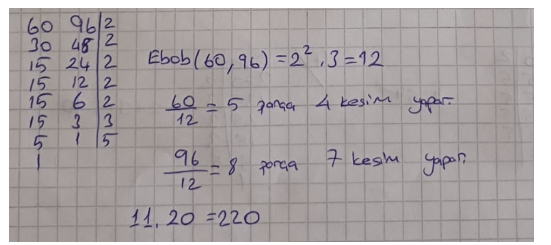 60 96 | 2
30 48 | 2
15 24 | 2
15 12 | 2
15 6 | 2
15 3 | 3
5 1 | 5
1
Ebob(60,96) = 2².3=12
60/12 = 5 parça 4 kesim yapar.
96/12 = 8 parça 7 kesim yapar.
11.20 = 220